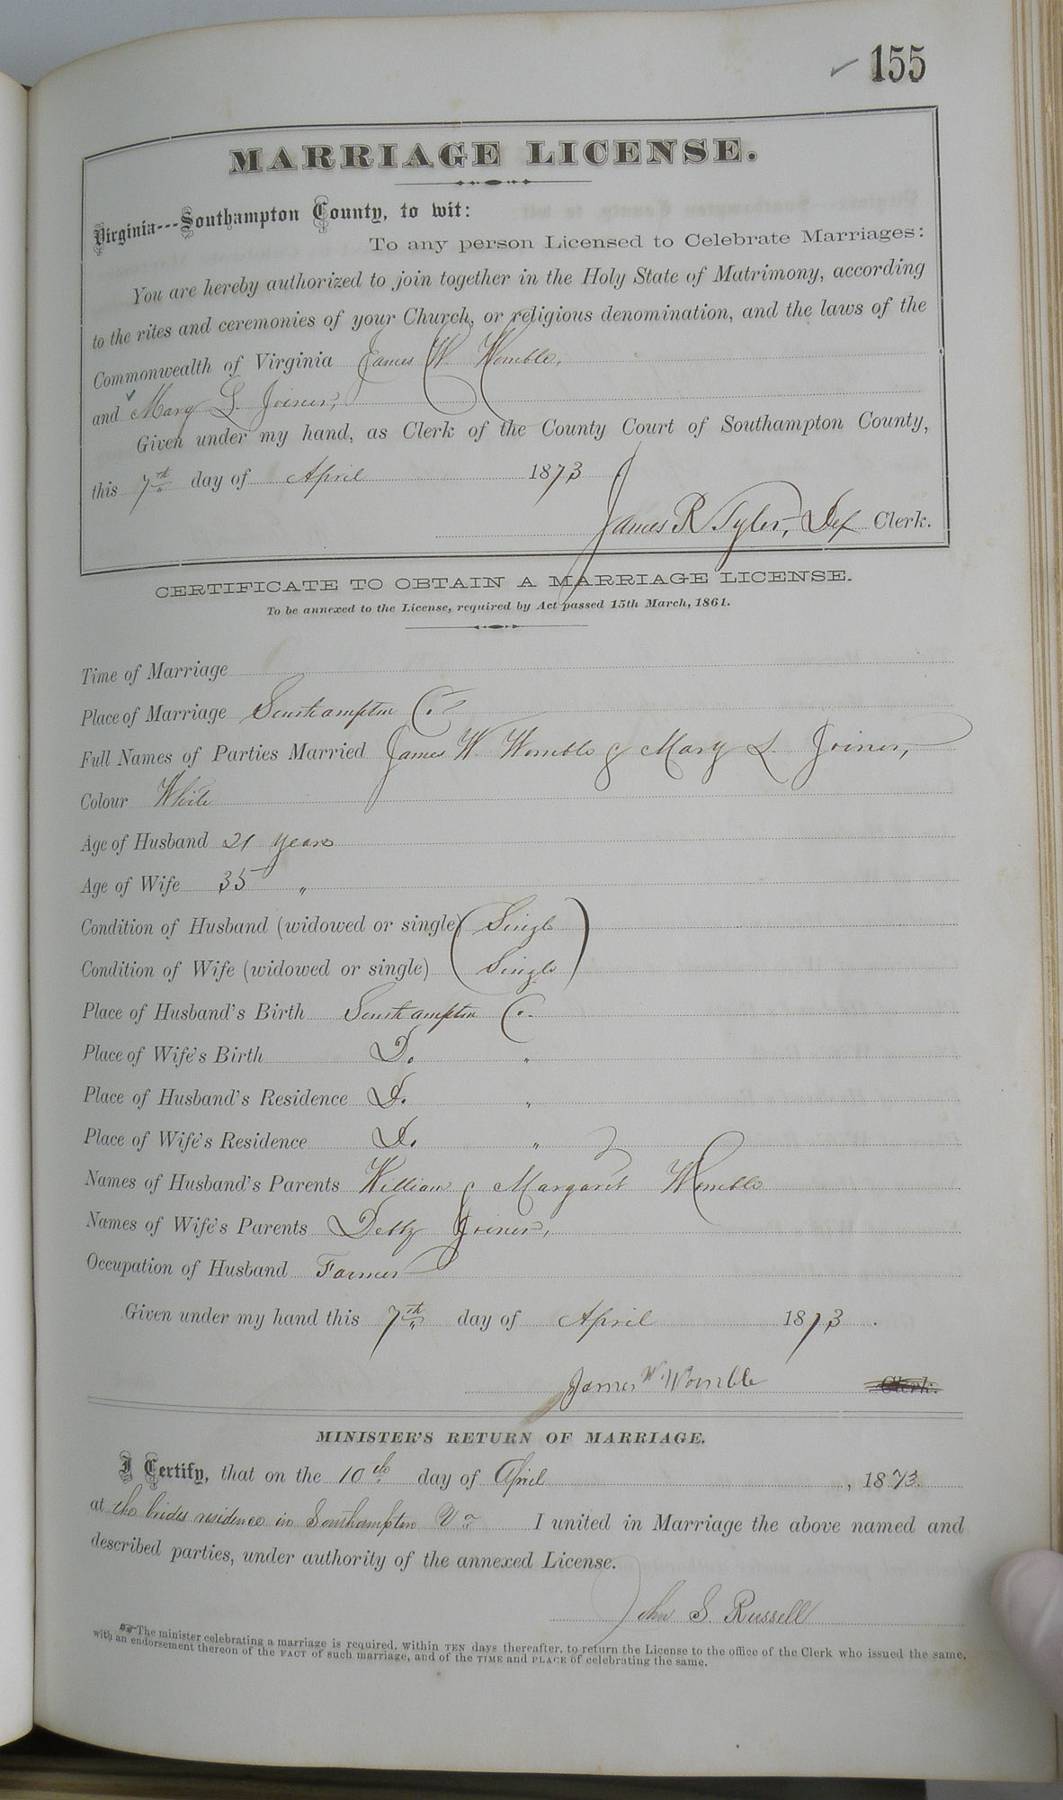 ✓ 155
MARRIAGE LICENSE.
Virginia---Southampton County, to wit:
To any person Licensed to Celebrate Marriages:
You are hereby authorized to join together in the Holy State of Matrimony, according
to the rites and ceremonies of your Church, or religious denomination, and the laws of the
Commonwealth of Virginia James W. Womble,
and Mary L. Joiner,
Given under my hand, as Clerk of the County Court of Southampton County,
this 7th day of April 1873
James R Tyler, Def Clerk.
CERTIFICATE TO OBTAIN A MARRIAGE LICENSE.
To be annexed to the License, required by Act passed 15th March, 1861.
Time of Marriage
Place of Marriage Southampton Co.
Full Names of Parties Married James W. Womble & Mary L. Joiner,
Colour White
Age of Husband 21 years
Age of Wife 35 "
Condition of Husband (widowed or single) Single
Condition of Wife (widowed or single) Single
Place of Husband's Birth Southampton Co.
Place of Wife's Birth Do. "
Place of Husband's Residence Do. "
Place of Wife's Residence Do. "
Names of Husband's Parents William & Margaret Womble
Names of Wife's Parents Debby Joiner,
Occupation of Husband Farmer
Given under my hand this 7th day of April 1873.
James W Womble Clerk.
MINISTER'S RETURN OF MARRIAGE.
I Certify, that on the 10th day of April, 1873.
at the brides residence in Southampton Va I united in Marriage the above named and
described parties, under authority of the annexed License.
John S. Russell
The minister celebrating a marriage is required, within TEN days thereafter, to return the License to the office of the Clerk who issued the same,
with an endorsement thereon of the FACT of such marriage, and of the TIME and PLACE of celebrating the same.